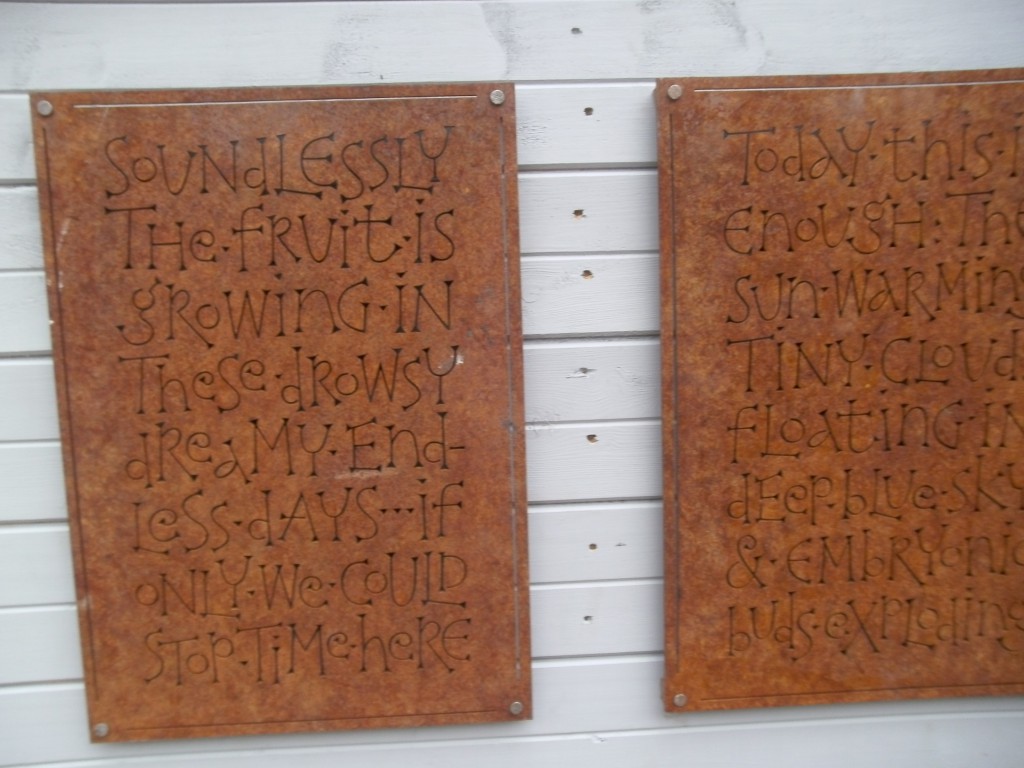 SoUNdLESSLY
THe·fRUit·iS
gRoWING·iN
THese·dRoWSY
dReaMY·ENd-
LeSS·dAYS···if
oNLY·We·CoULD
SToP·TiMe·heRE
Today·this·i
ENoUGH·The
SuN·WaRMiNg
TiNY·CLoUd
fLoatiNG·iN
dEeP·bLUe·SkY
& EMbRYoNiC
buds·eXPLodiNg